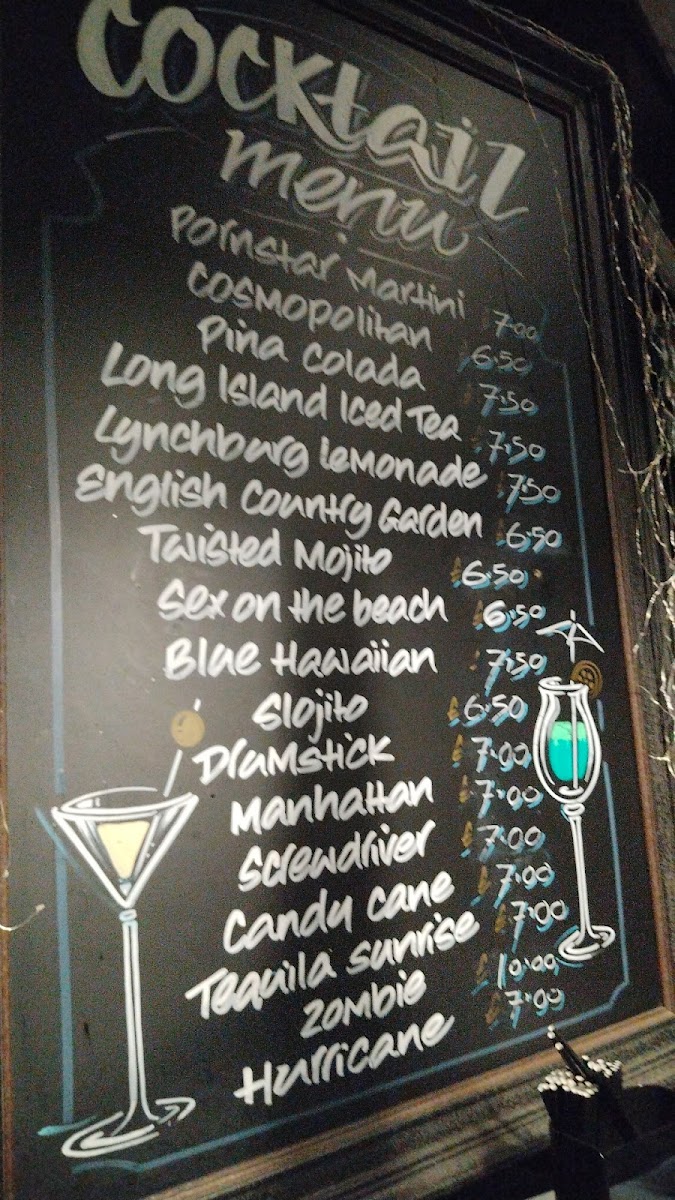 Cocktail
menu
Pornstar Martini £7.00
Cosmopolitan £6.50
Pina Colada £7.50
Long Island Iced Tea £7.50
Lynchburg Lemonade £7.50
English Country Garden £6.50
Twisted Mojito £6.50
Sex on the beach £6.50
Blue Hawaiian £7.50
Slojito £6.50
Drumstick £7.00
Manhattan £7.00
Screwdriver £7.00
Candy cane £7.00
Tequila sunrise £7.00
Zombie £10.00
Hurricane £7.00